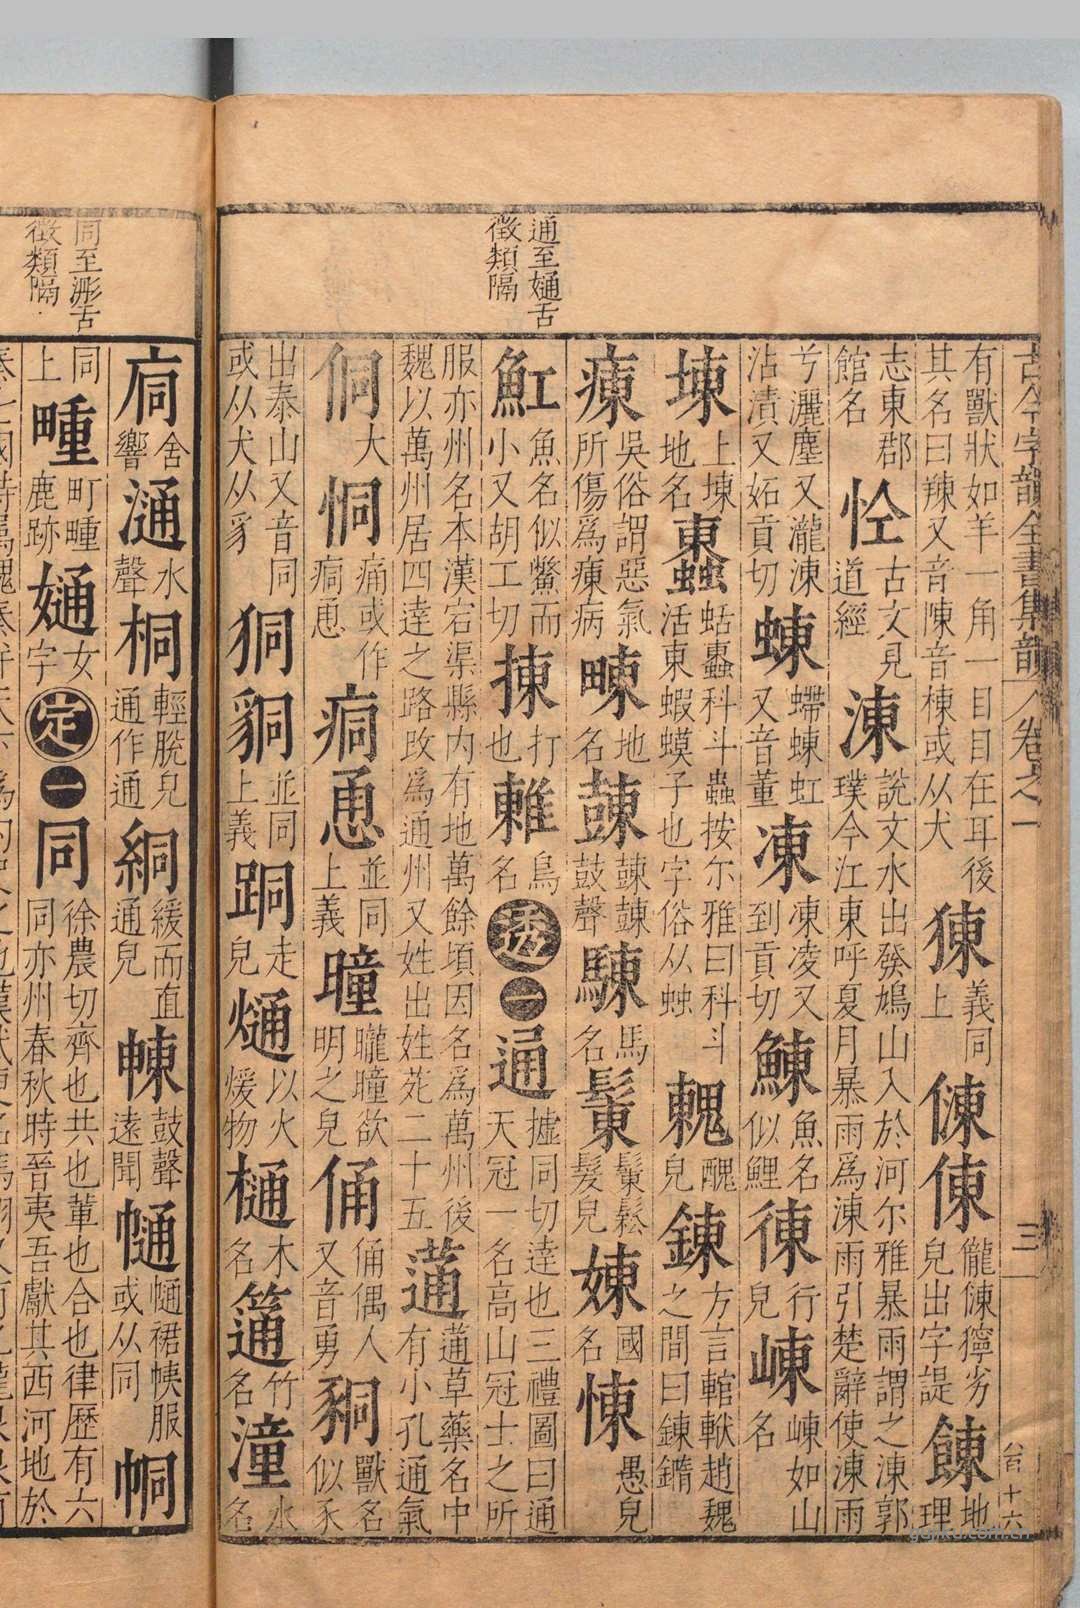 古今字韻全書集韻 卷之一 三 台十六
通至㛚舌
徵類隔
有獸狀如羊一角一目目在耳後
其名曰辣又音陳音棟或从犬
𤟈義同上
倲
倲儱倲獰劣皃出字諟
餗地理
志東郡館名
㤏古文見道經
涷說文水出發鳩山入於河尔雅暴雨謂之涷郭
璞今江東呼夏月暴雨爲涷雨引楚辭使涷雨
兮灑塵又瀧涷沾漬又妬貢切
蝀螮蝀虹又音董
凍凍凌又到貢切
鯟魚名似鯉
徚行皃
崠崠如山名
埬上埬地名
蝀蛄䘆科斗蟲按尔雅曰科斗
活東蝦蟆子也字俗从䖵
䰤醜皃
錬方言輨軑趙魏之間曰錬鐫
𤸮吳俗謂惡氣所傷爲𤸮病
𤱱地名
𪔜𪔜𪔜鼓聲
駷馬名
鬃鬃鬆髮皃
娻國名
㨂愚皃
魟魚名似鱉而小又胡工切
揀打也
鶇鳥名
透一
通摣同切達也三禮圖曰通
天冠一名高山冠士之所
服亦州名本漢宕渠縣內有地萬餘頃因名爲萬州後
魏以萬州居四達之路改爲通州又姓出姓苑二十五
蓪蓪草藥名中有小孔通氣
侗大
恫痛或作痌恿
痌恿並同上義
曈曨曈欲明之皃
俑俑偶人又音勇
𧱁獸名似豕
出泰山又音同或从犬从豸
狪
𧳆並同上義
𨀜走皃
熥以火煖物
樋木名
筩竹名
潼水名
同至浵舌
徵類隔
㢥舍響
𣻢水聲
桐輕脫皃通作通
絧緩而直通皃
㡓鼓聲遠聞
㡏㡏裙帙服或从同
㡈
同上
畽町畽鹿跡
㛚女字
定一
同徐農切齊也共也輩也合也律歷有六
同亦州春秋時晉夷吾獻其西河地於